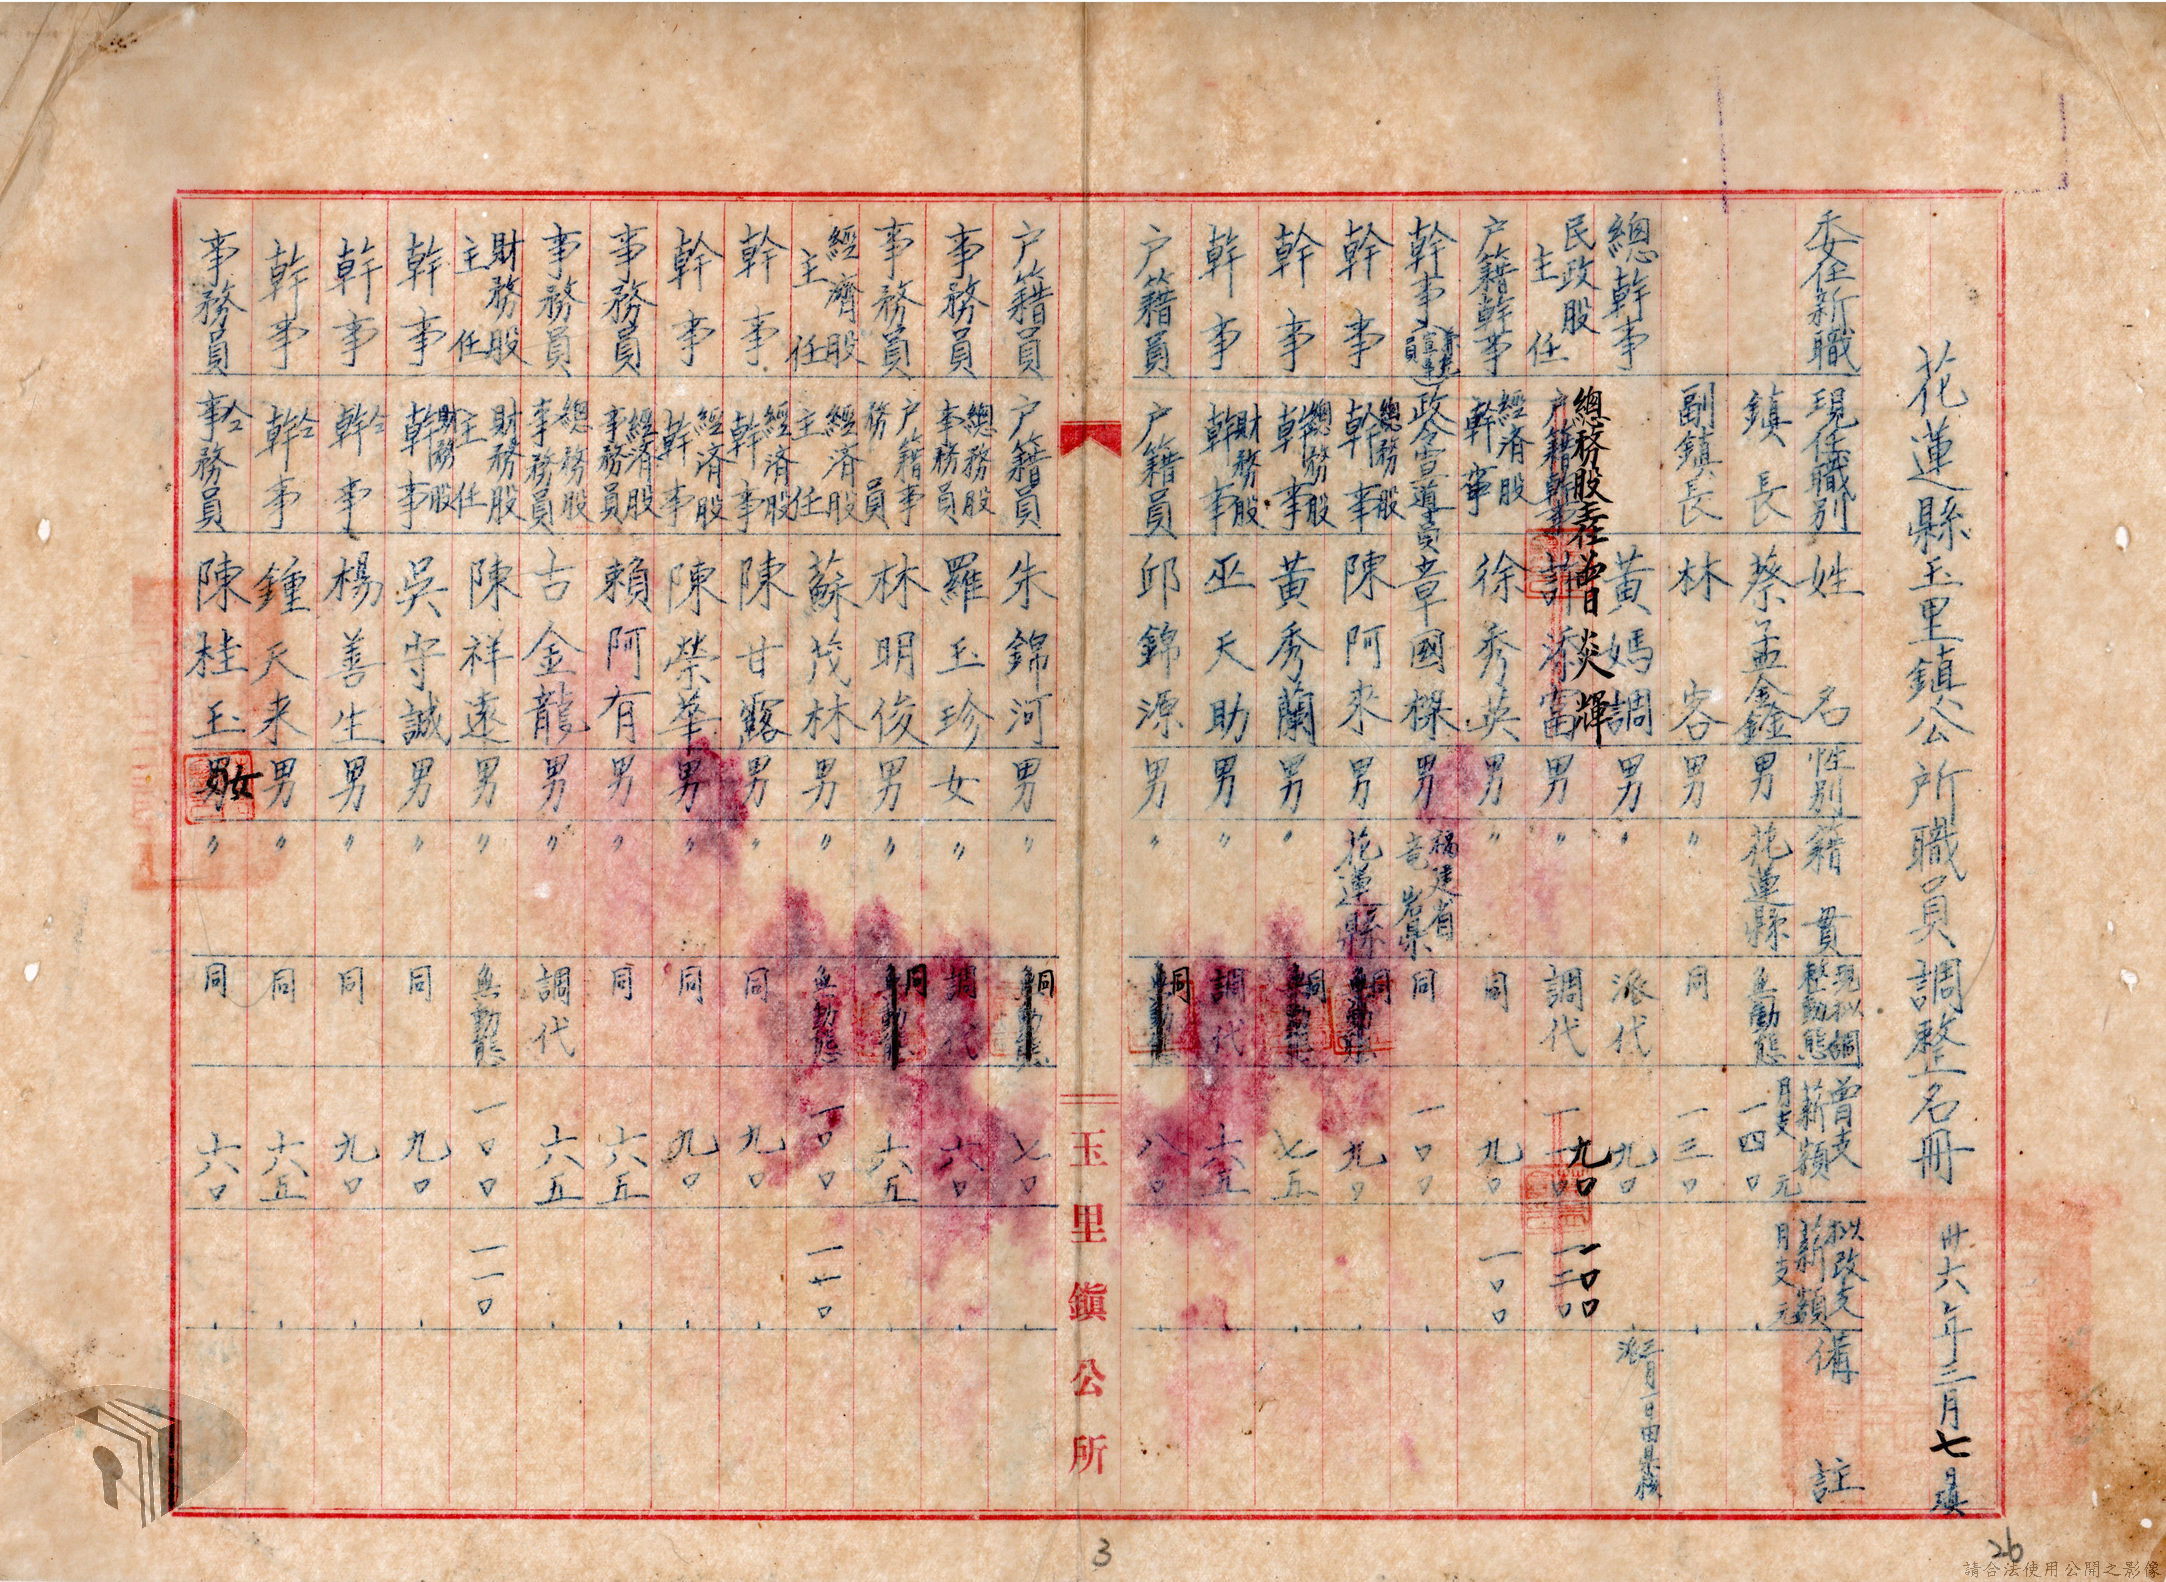 花蓮縣玉里鎮公所職員調整名冊 卅六年三月七日填
委任新職 現任職別 姓名 性別 籍貫 現擬調整動態 曾支薪額 擬改支薪額 備註
鎮長 蔡孟鑫 男 花蓮縣 無動態 月支一四〇元 月支元
副鎮長 林容 男 〃 同 一三〇
總幹事 黃媽調 男 〃 派代 九〇
總務股主任 曾炎輝 九〇 一〇〇
民政股主任 戶籍幹事 許添富 男 〃 調代
戶籍幹事 經濟股幹事 徐秀英 男 〃 同 九〇 一〇〇
幹事 政令宣導員 章國樑 男 福建省 同 一〇〇
幹事 總務股幹事 陳阿來 男 花蓮縣 同 九〇
幹事 總務股幹事 黃秀蘭 男 〃 同 七五
幹事 財務股幹事 巫天助 男 〃 調代 六五
戶籍員 戶籍員 邱錦源 男 〃 同 八〇
玉里鎮公所
戶籍員 戶籍員 朱錦河 男 〃 同 七〇
事務員 總務股事務員 羅玉珍 女 〃 調代 六〇
事務員 戶籍事務員 林明俊 男 〃 同 六五
經濟股主任 經濟股主任 蘇茂林 男 〃 無動態 一〇〇 一一〇
幹事 經濟股幹事 陳甘露 男 〃 同 九〇
幹事 經濟股幹事 陳榮華 男 〃 同 九〇
事務員 經濟股事務員 賴阿有 男 〃 同 六五
事務員 總務股事務員 古金龍 男 〃 調代 六五
財務股主任 財務股主任 陳祥遠 男 〃 無動態 一〇〇 一一〇
幹事 財務股幹事 吳守誠 男 〃 同 九〇
幹事 仝幹事 楊善生 男 〃 同 九〇
幹事 仝幹事 鍾天來 男 〃 同 六五
事務員 仝事務員 陳桂玉 女 〃 同 六〇
3
26
請合法使用公開之影像